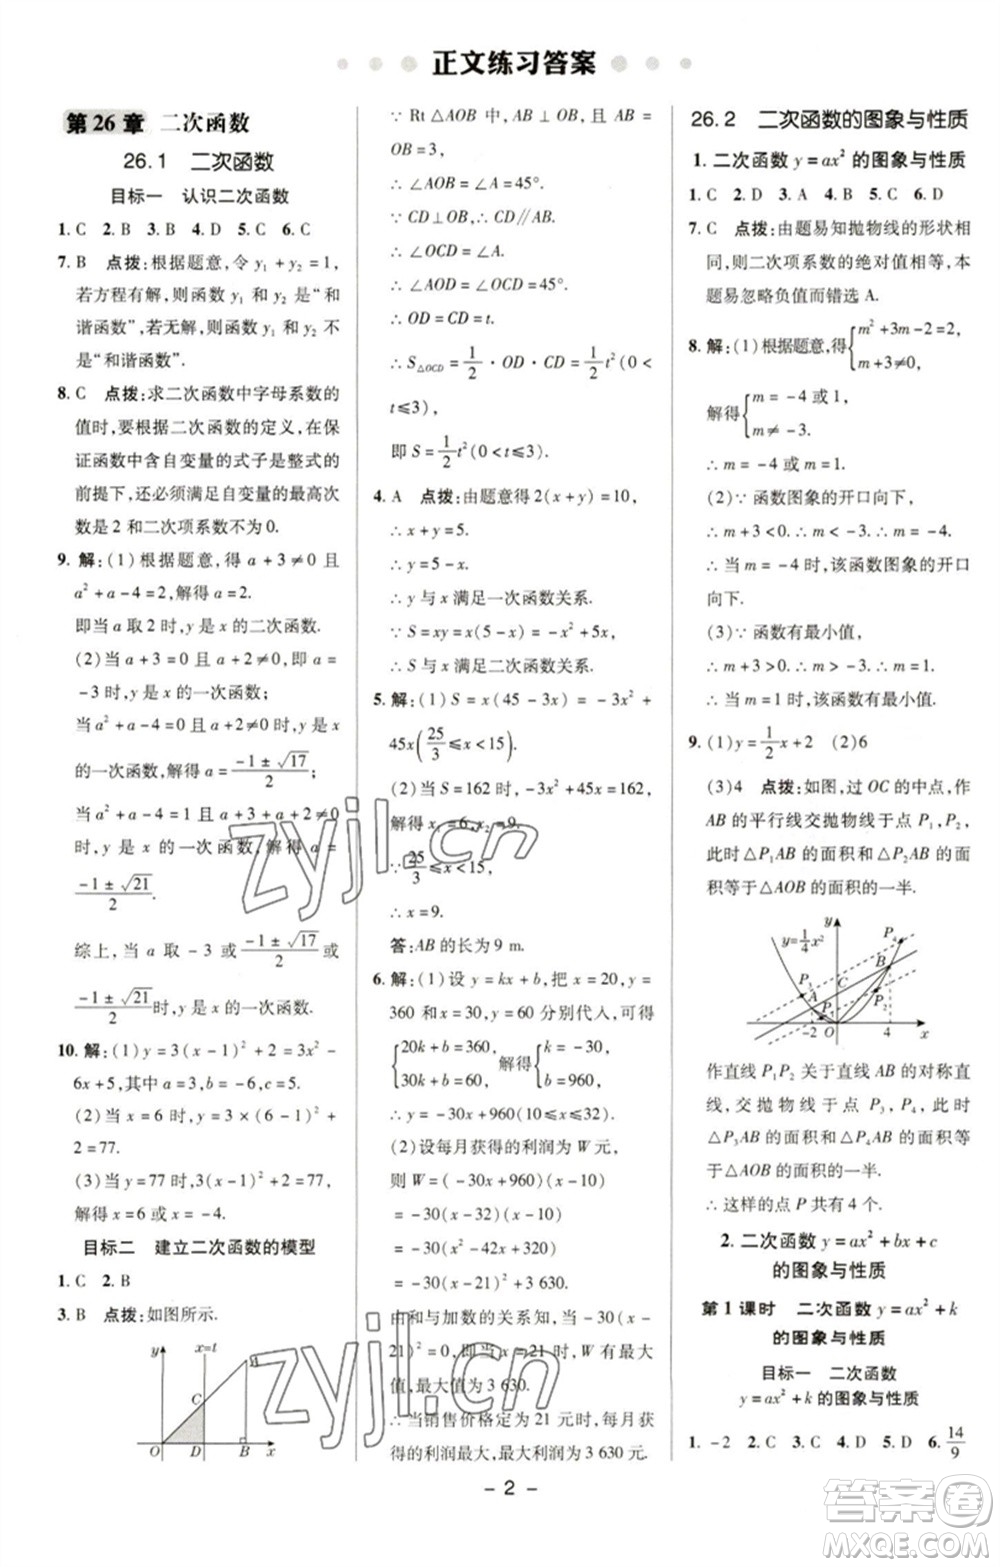 正文练习答案
第26章 二次函数
26.1 二次函数
目标一 认识二次函数
1. C 2. B 3. B 4. D 5. C 6. C
7. B 点拨：根据题意，令 y₁ + y₂ = 1，
若方程有解，则函数 y₁ 和 y₂ 是“和
谐函数”，若无解，则函数 y₁ 和 y₂ 不
是“和谐函数”.
8. C 点拨：求二次函数中字母系数的
值时，要根据二次函数的定义，在保
证函数中含自变量的式子是整式的
前提下，还必须满足自变量的最高次
数是 2 和二次项系数不为 0.
9. 解：(1)根据题意，得 a + 3 ≠ 0 且
a² + a - 4 = 2，解得 a = 2.
即当 a 取 2 时，y 是 x 的二次函数.
(2)当 a + 3 = 0 且 a + 2 ≠ 0，即 a =
-3 时，y 是 x 的一次函数；
当 a² + a - 4 = 0 且 a + 2 ≠ 0 时，y 是 x
的一次函数，解得 a = (-1 ± √17)/2；
当 a² + a - 4 = 1 且 a + 3 + a + 2 ≠ 0
时，y 是 x 的一次函数，解得 a =
(-1 ± √21)/2.
综上，当 a 取 -3 或 (-1 ± √17)/2 或
(-1 ± √21)/2 时，y 是 x 的一次函数.
10. 解：(1) y = 3(x - 1)² + 2 = 3x² -
6x + 5；a = 3，b = -6，c = 5.
(2)当 x = 6 时，y = 3 × (6 - 1)² +
2 = 77.
(3)当 y = 77 时，3(x - 1)² + 2 = 77，
解得 x = 6 或 x = -4.
目标二 建立二次函数的模型
1. C 2. B
3. B 点拨：如图所示.
y x=t A C O D B x
∵ Rt△AOB 中，AB ⊥ OB，且 AB =
OB = 3，
∴ ∠AOB = ∠A = 45°.
∵ CD⊥OB，∴ CD∥AB.
∴ ∠OCD = ∠A.
∴ ∠AOD = ∠OCD = 45°.
∴ OD = CD = t.
∴ S△OCD = 1/2 · OD · CD = 1/2 t²(0 <
t ≤ 3)，
即 S = 1/2 t²(0 < t ≤ 3).
4. A 点拨：由题意得 2(x + y) = 10，
∴ x + y = 5.
∴ y = 5 - x.
∴ y 与 x 满足一次函数关系.
∵ S = xy = x(5 - x) = -x² + 5x，
∴ S 与 x 满足二次函数关系.
5. 解：(1) S = x(45 - 3x) = -3x² +
45x(25/3 ≤ x < 15).
(2)当 S = 162 时，-3x² + 45x = 162，
解得 x₁ = 6，x₂ = 9.
∵ 25/3 ≤ x < 15，
∴ x = 9.
答：AB 的长为 9 m.
6. 解：(1)设 y = kx + b，把 x = 20，y =
360 和 x = 30，y = 60 分别代入，可得
{20k + b = 360，30k + b = 60， 解得 {k = -30，b = 960，
∴ y = -30x + 960(10 ≤ x ≤ 32).
(2)设每月获得的利润为 W 元，
则 W = (-30x + 960)(x - 10)
= -30(x - 32)(x - 10)
= -30(x² - 42x + 320)
= -30(x - 21)² + 3 630.
由和与加数的关系知，当 -30(x -
21)² = 0，即 x = 21 时，W 有最大
值，最大值为 3 630.
∴ 当销售价格定为 21 元时，每月获
得的利润最大，最大利润为 3 630 元.
26.2 二次函数的图象与性质
1. 二次函数 y = ax² 的图象与性质
1. C 2. D 3. A 4. B 5. C 6. D
7. C 点拨：由题易知抛物线的形状相
同，则二次项系数的绝对值相等，本
题易忽略负值而错选 A.
8. 解：(1)根据题意，得 {m² + 3m - 2 = 2，m + 3 ≠ 0，
解得 {m = -4 或 1，m ≠ -3.
∴ m = -4 或 m = 1.
(2)∵ 函数图象的开口向下，
∴ m + 3 < 0. ∴ m < -3. ∴ m = -4.
∴ 当 m = -4 时，该函数图象的开口
向下.
(3)∵ 函数有最小值，
∴ m + 3 > 0. ∴ m > -3. ∴ m = 1.
∴ 当 m = 1 时，该函数有最小值.
9. (1)y = 1/2 x + 2 (2)6
(3)4 点拨：如图，过 OC 的中点，作
AB 的平行线交抛物线于点 P₁，P₂，
此时△P₁AB 的面积和△P₂AB 的面
积等于△AOB 的面积的一半.
y=1/4 x² y P₄ B P₃ A C P₂ P₁ -2 O 4 x
作直线 P₁P₂ 关于直线 AB 的对称直
线，交抛物线于点 P₃，P₄，此时
△P₃AB 的面积和△P₄AB 的面积等
于△AOB 的面积的一半.
∴ 这样的点 P 共有 4 个.
2. 二次函数 y = ax² + bx + c
的图象与性质
第 1 课时 二次函数 y = ax² + k
的图象与性质
目标一 二次函数
y = ax² + k 的图象与性质
1. -2 2. C 3. C 4. D 5. D 6. 14/9
- 2 -
zyjl.cn
zyjl.cn
答案圈
MXQE.COM